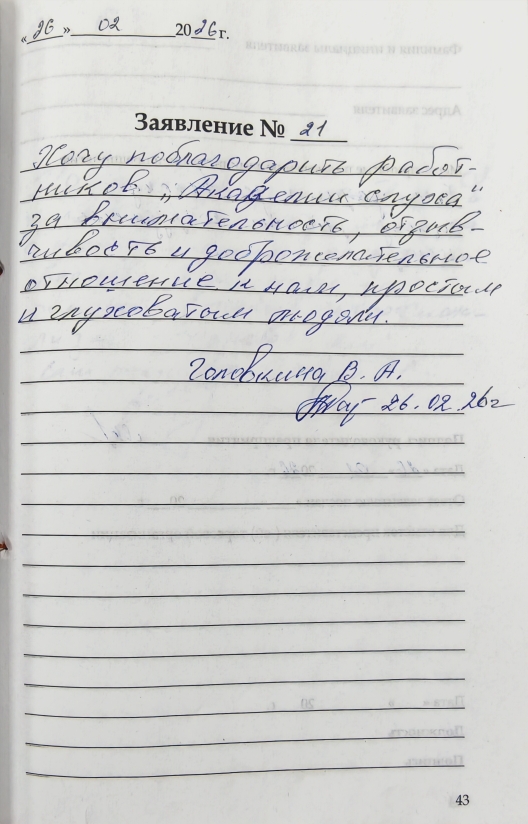 «26» 02 2026 г.
Заявление № 21
Хочу поблагодарить работ-
ников „Академии слуха"
за внимательность, отзыв-
чивость и доброжелательное
отношение к нам, простым
и глуховатым людям.
Головкина В. А.
26.02.26г
43